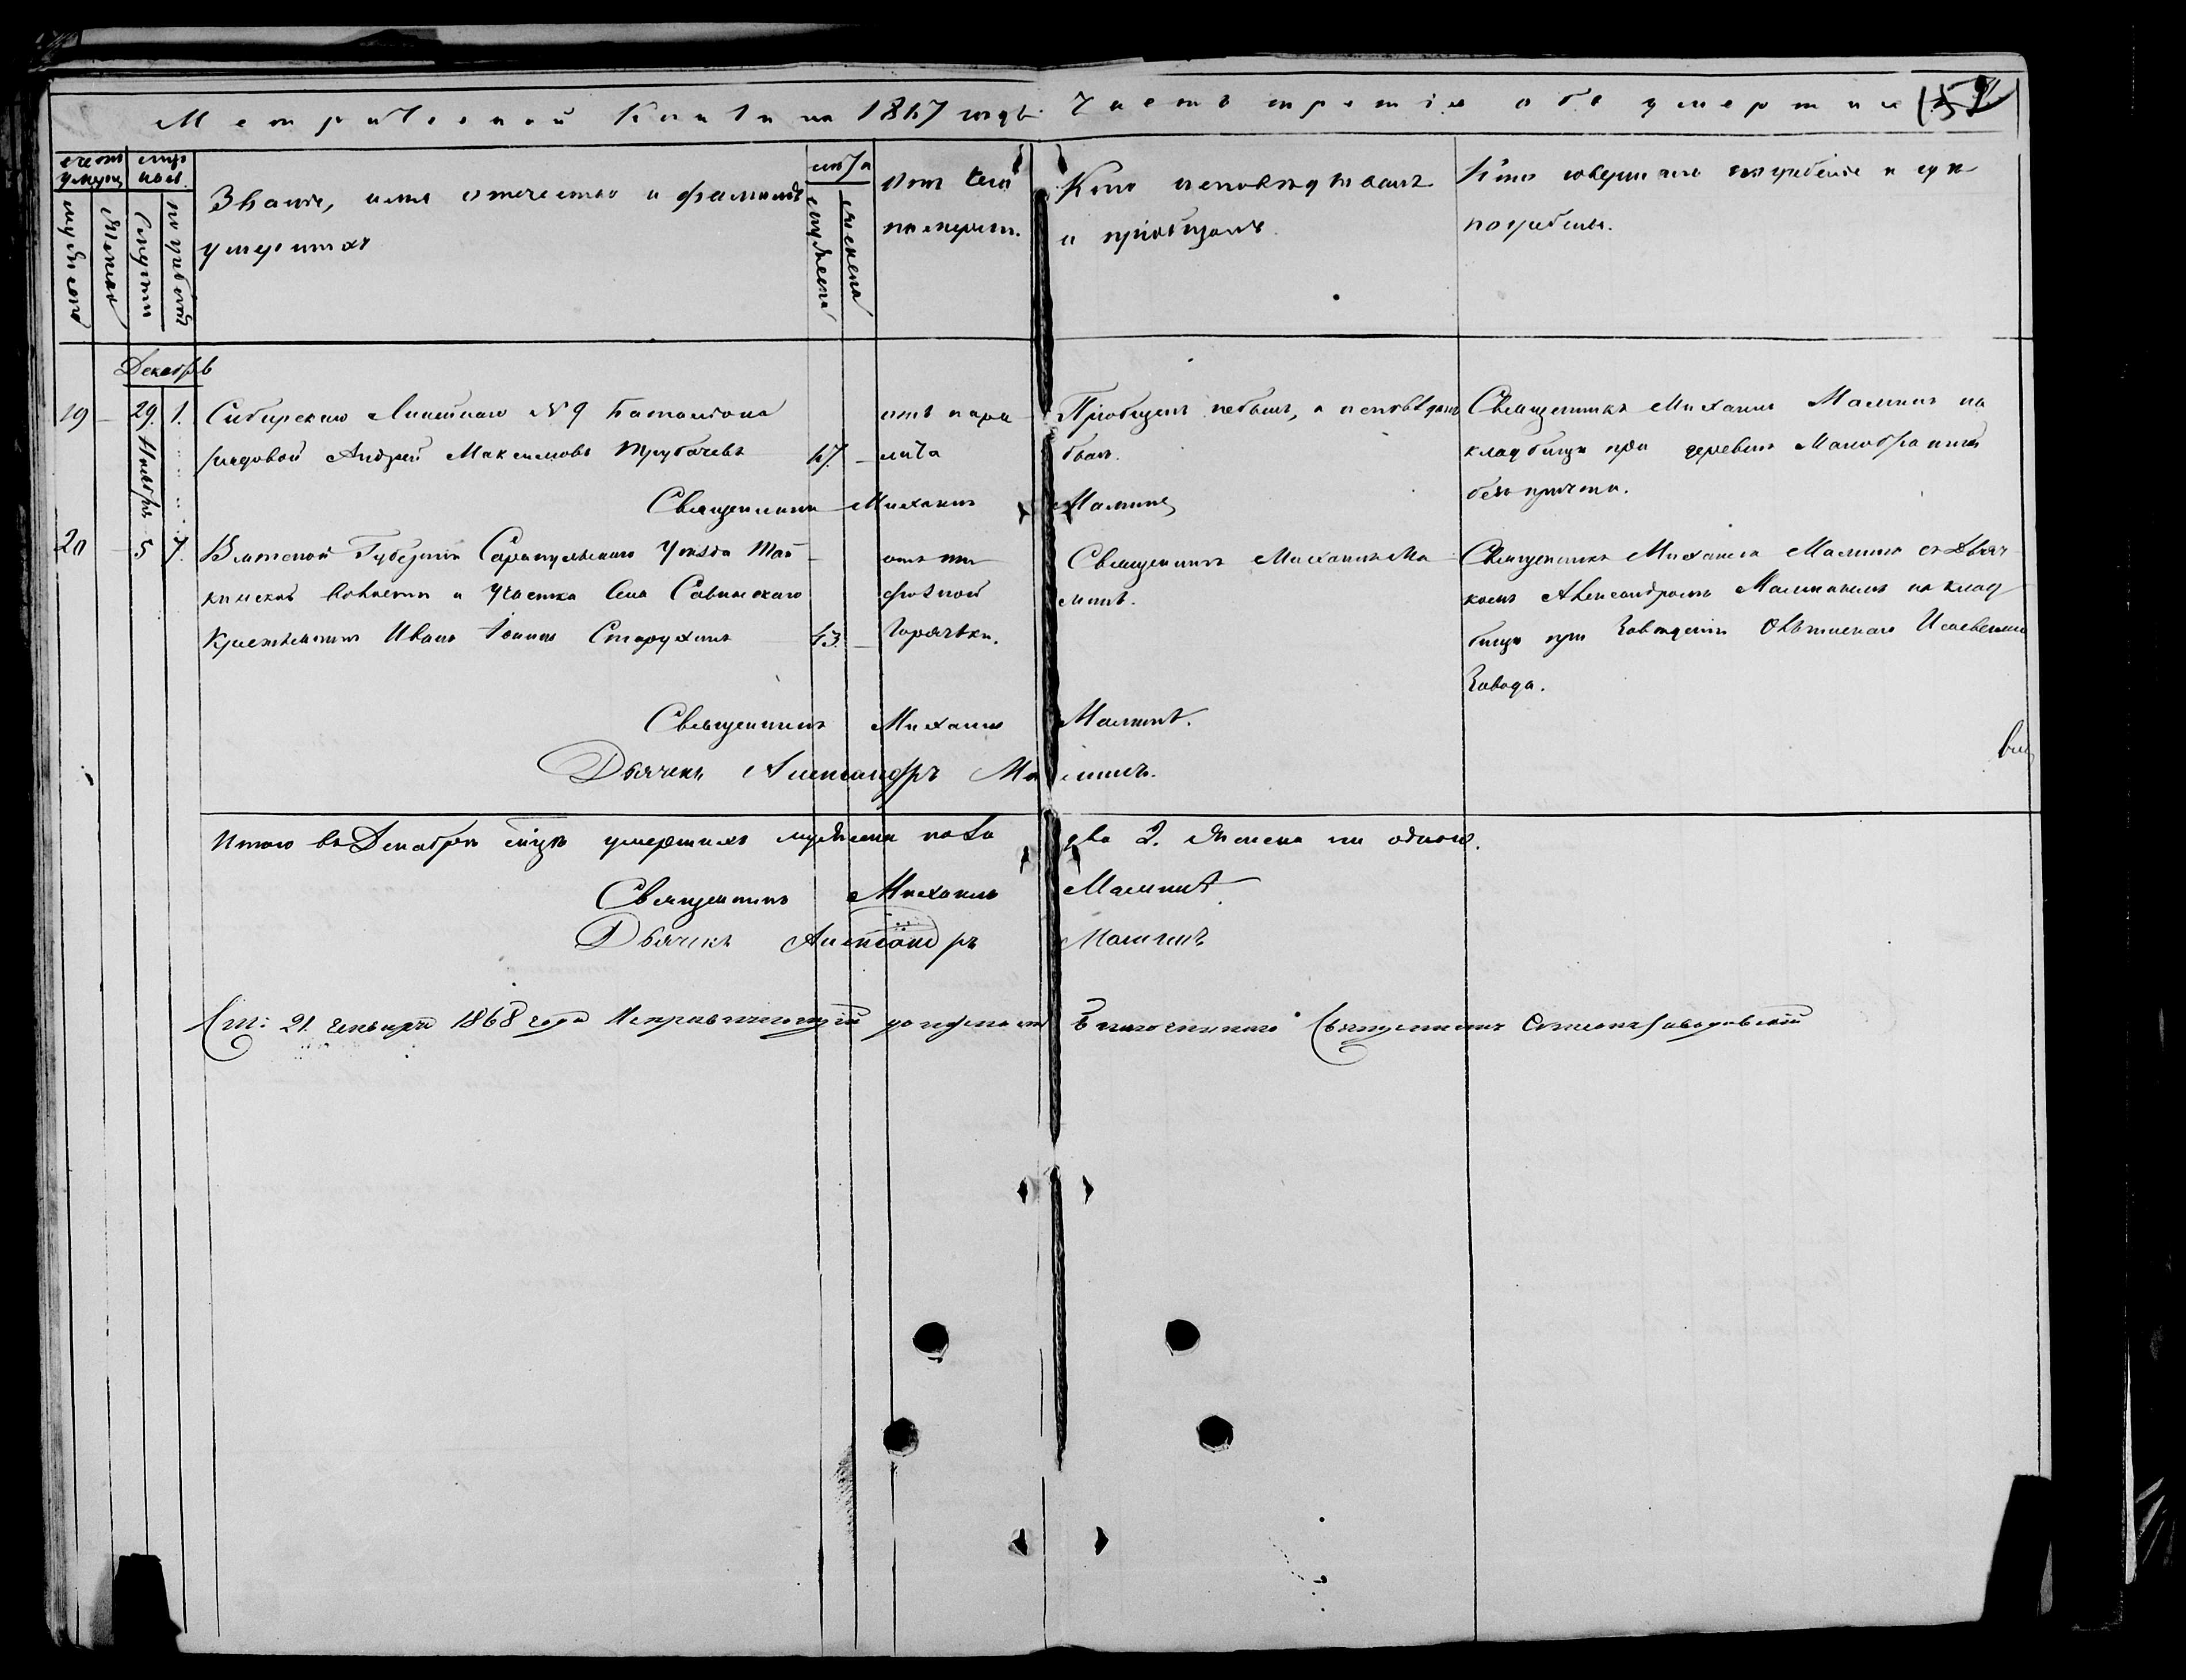 Метрической Книги на 1867 годъ. Часть третія объ умершихъ
152
счетъ умерш.
мужеска
женска
смерти
погребенія
Званіе, имя отчество и фамилія
умершихъ
лѣта
мужеска
женска
Отъ чего
померъ.
Кто исповѣдывалъ
и пріобщалъ.
Кто совершалъ погребеніе и гдѣ
погребенъ.
Декабрь
19 – 29. Ноябрь 1.
Сибирскаго Линейнаго № 9 Баталіона
рядовой Андрей Максимовъ Трубачевъ
47. –
отъ пара
лича
Пріобщенъ небылъ, а исповѣданъ
былъ.
Священникъ Михаилъ Малминъ на
кладбищѣ при деревнѣ
безъ причта.
Священникъ Михаилъ Малминъ
20 – 5 7.
Вятской Губерніи Сарапульскаго Уѣзда
волости и Участка Села Савинскаго
Крестьянинъ Иванъ Старухинъ
43. –
отъ ти
фозной
горячьки.
Священникъ Михаилъ Ма
лминъ.
Священникъ Михаилъ Малминъ съ Дьяч
комъ Александромъ Малминымъ на клад
бищѣ при Заведеніи
Завода.
Священникъ Михаилъ Малминъ.
Дьячекъ Александръ Малминъ.
Итого въ Декабрѣ мѣсяцѣ умершихъ мужеска пола два 2. Женска ни одного.
Священникъ Михаилъ Малминъ.
Дьячекъ Александръ Малминъ
21. Генваря 1868 года Исправляющій должность Благочиннаго Священникъ